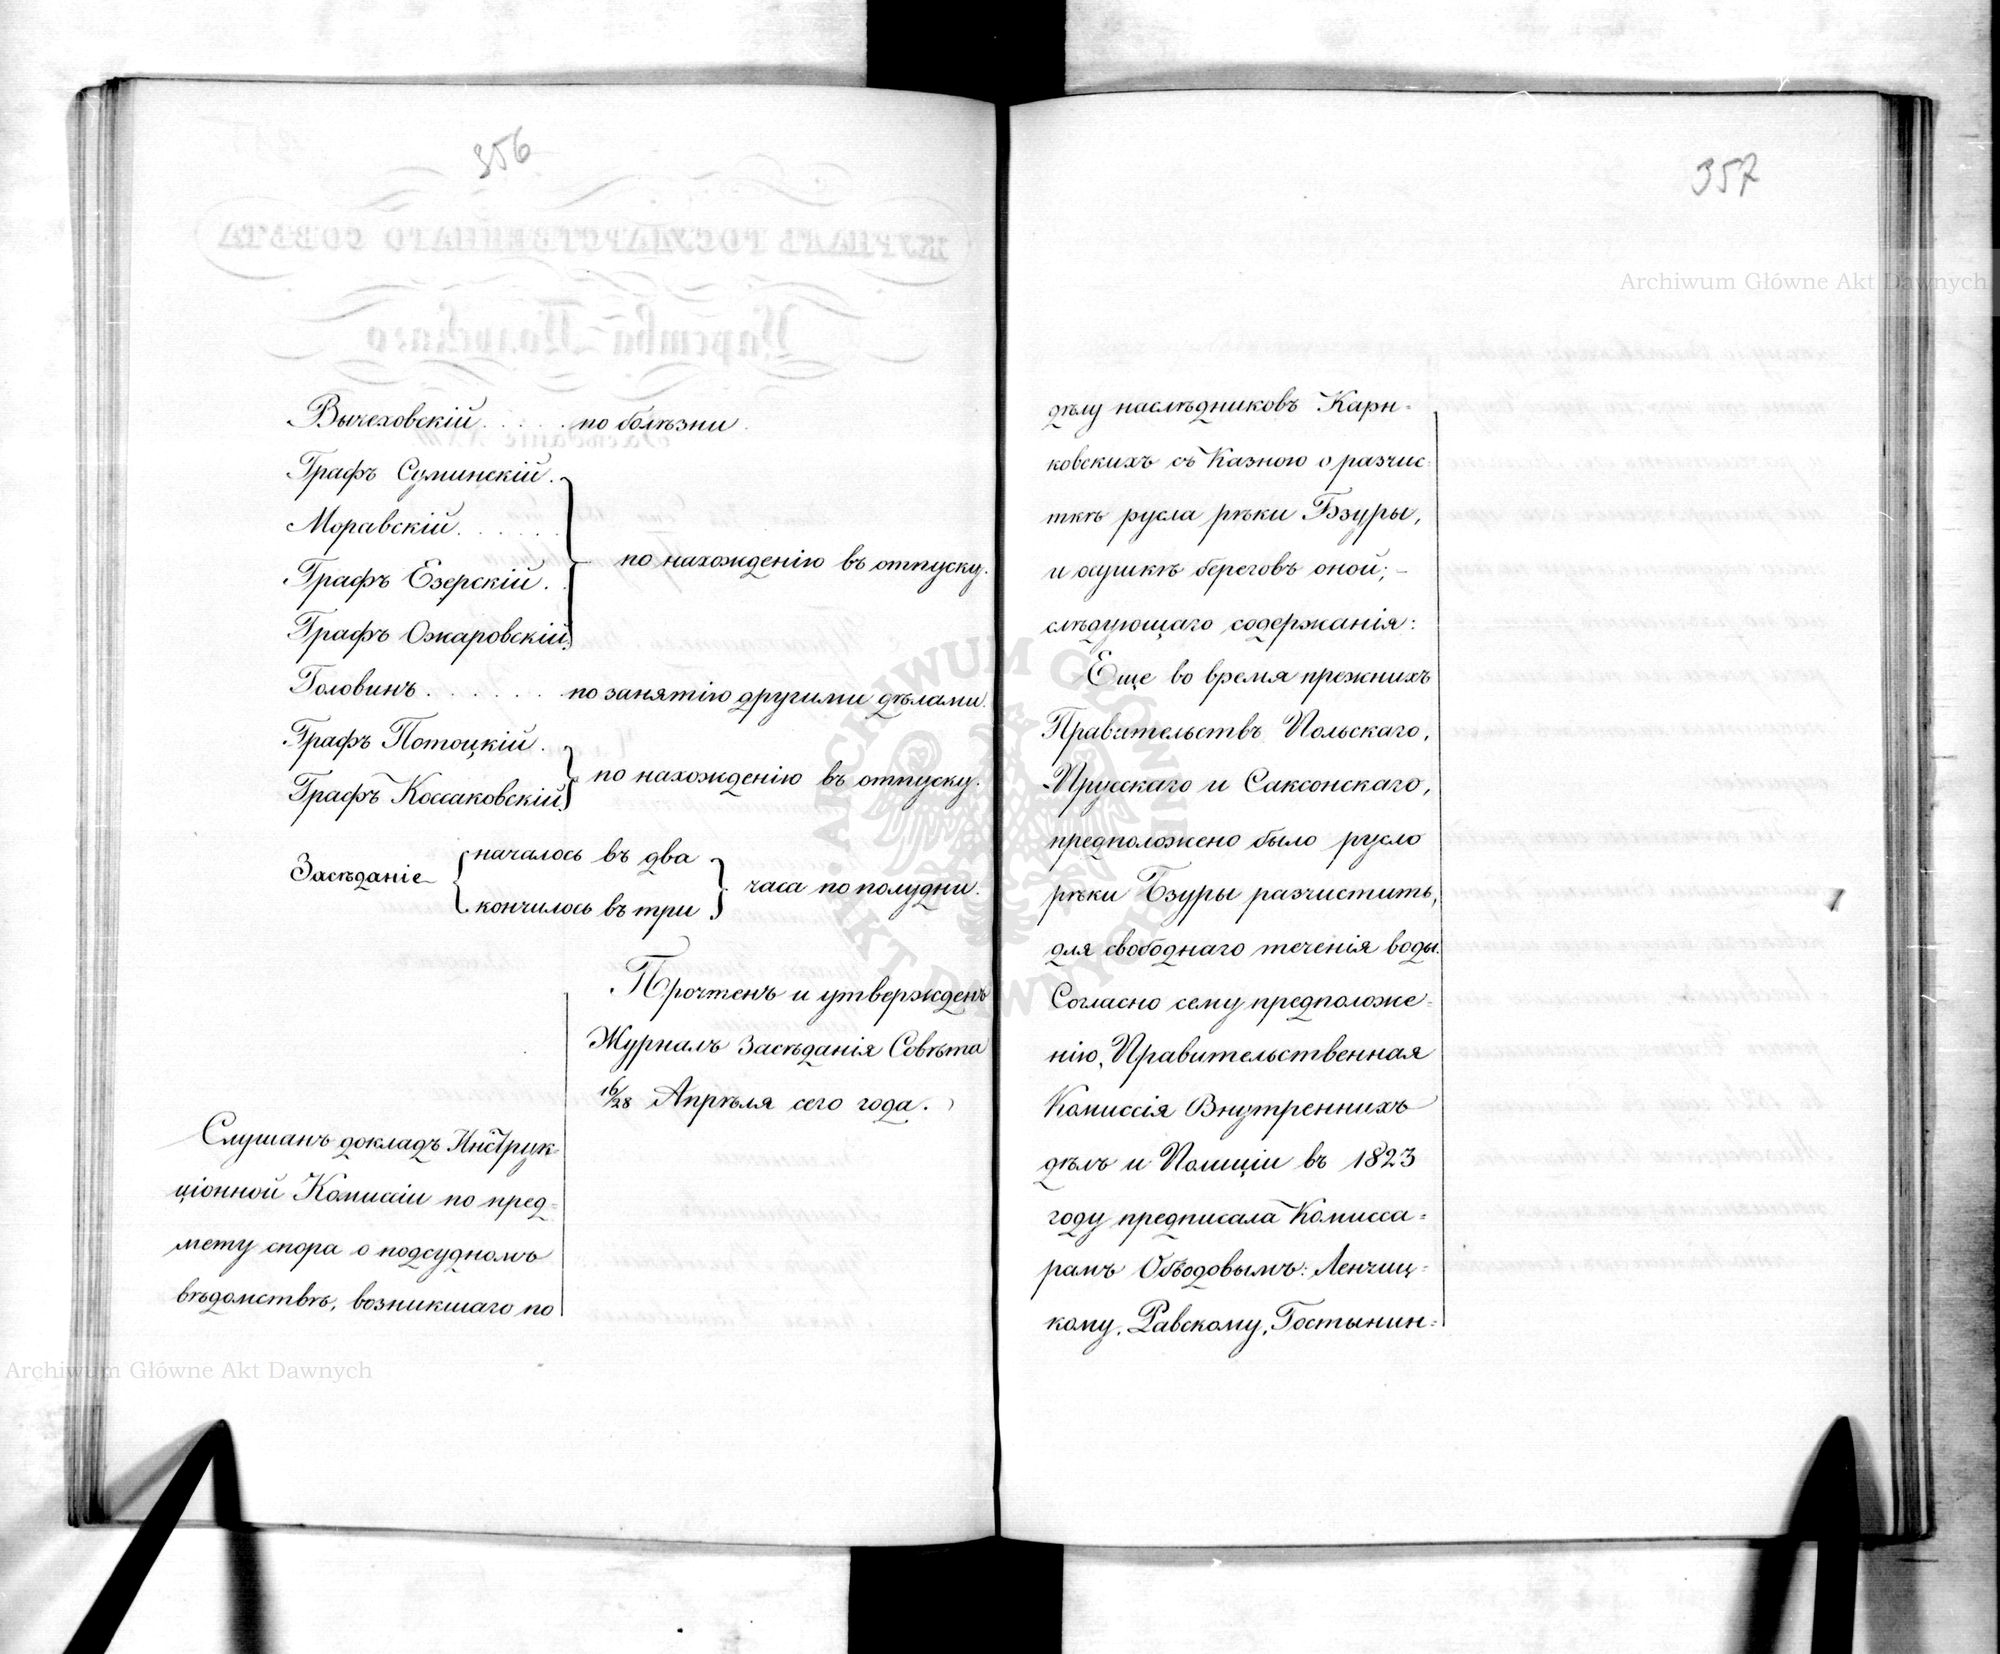 356
Вычеховскій . . . . . по болѣзни.
Графъ Суминскій.
Моравскій . . . . . .
Графъ Езерскій . .
по нахожденію въ отпуску.
Графъ Ожаровскій
Головинъ . . . . . . . по занятію другими дѣлами.
Графъ Потоцкій .
по нахожденію въ отпуску.
Графъ Коссаковскій
Засѣданіе
началось въ два
кончилось въ три
часа по полудни.
Прочтенъ и утвержденъ
Журналъ Засѣданія Совѣта
16/28 Апрѣля сего года.
Слушанъ докладъ Инструк-
ціонной Комиссіи по пред-
мету спора о подсудномъ
вѣдомствѣ, возникшаго по
Archiwum Główne Akt Dawnych
357
Archiwum Główne Akt Dawnych
дѣлу наслѣдниковъ Карн-
ковскихъ съ Казною о разчис-
ткѣ русла рѣки Бзуры,
и осушкѣ береговъ оной; –
слѣдующаго содержанія:
Еще во время прежнихъ
Правительствъ Польскаго,
Прусскаго и Саксонскаго,
предположено было русло
рѣки Бзуры разчистить,
для свободнаго теченія воды.
Согласно сему предположе-
нію, Правительственная
Комиссія Внутреннихъ
дѣлъ и Полиціи въ 1823
году предписала Комисса-
рамъ Обводовымъ: Ленчиц-
кому, Равскому, Гостынин-
ARCHIWUM GŁÓWNE AKT DAWNYCH